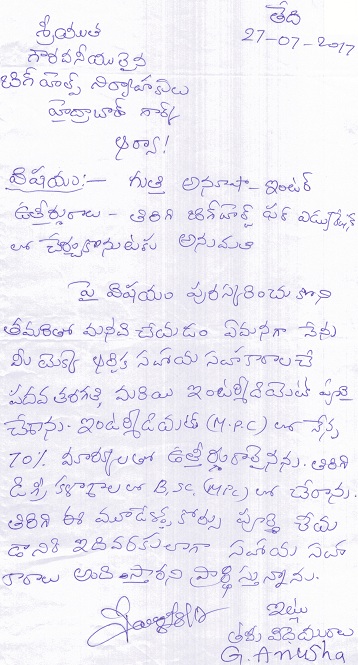 తేది
27-07-2017
శ్రీయుత
గౌరవనీయులైన
బిగ్ హెల్ప్ నిర్వాహకులు
హైద్రాబాద్ గార్కి
ఆర్యా!
విషయం:- గుత్తి అనూషా - ఇంటర్
ఉత్తీర్ణురాలు - తిరిగి బిగ్ హెల్ప్ ఫర్ ఎడ్యుకేషన్
లో చేర్చుకొనుటకు అనుమతి
పై విషయం పురస్కరించుకొని
తమరితో మనవి చేయడం ఏమనగా నేను
మీ యొక్క ఆర్థిక సహాయ సహకారాలచే
పదవ తరగతి మరియి ఇంటర్మీడియెట్ పూర్తి
చేశాను. ఇంటర్మీడియట్ (M.P.C) లో నేను
70% మార్కులతో ఉత్తీర్ణురాలైనను. తిరిగి
డిగ్రీ కళాశాలలో B.SC, (MPC) లో చేరాను.
తిరిగి ఈ మూడేళ్ళ కోర్సు పూర్తి చేయ
డానికి ఇదివరకులాగా సహాయ సహ
కారాలు అందిస్తారని ప్రార్థిస్తున్నాను.
ఇట్లు
తమ విధేయురాలు
G. Anusha